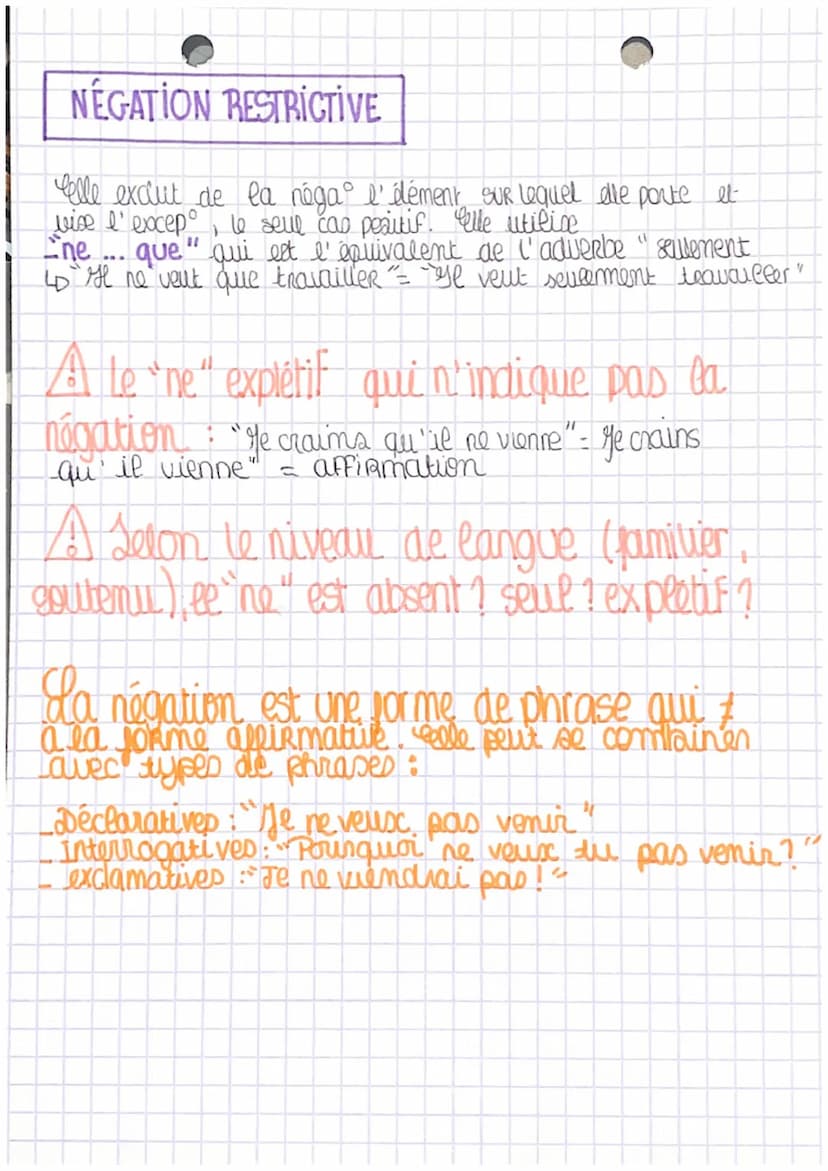 NÉGATION RESTRICTIVE
Elle exclut de la néga° l'élément sur lequel elle porte et
vise l'excep°, le seul cas positif. Elle utilise
"ne ... que" qui est l'équivalent de l'adverbe "seulement
↳ "Il ne veut que travailler" = "Il veut seulement travailler"
⚠ Le "ne" explétif qui n'indique pas la
négation : "Je crains qu'il ne vienne" = Je crains
qu'il vienne" = affirmation
⚠ Selon le niveau de langue (familier,
soutenu), le "ne" est absent ? seul ? explétif ?
La négation est une forme de phrase qui ≠
à la forme affirmative. Elle peut se combiner
avec types de phrases :
- Déclaratives : "Je ne veux pas venir"
- interrogatives : "Pourquoi ne veux tu pas venir ?"
- exclamatives : "Je ne viendrai pas !"